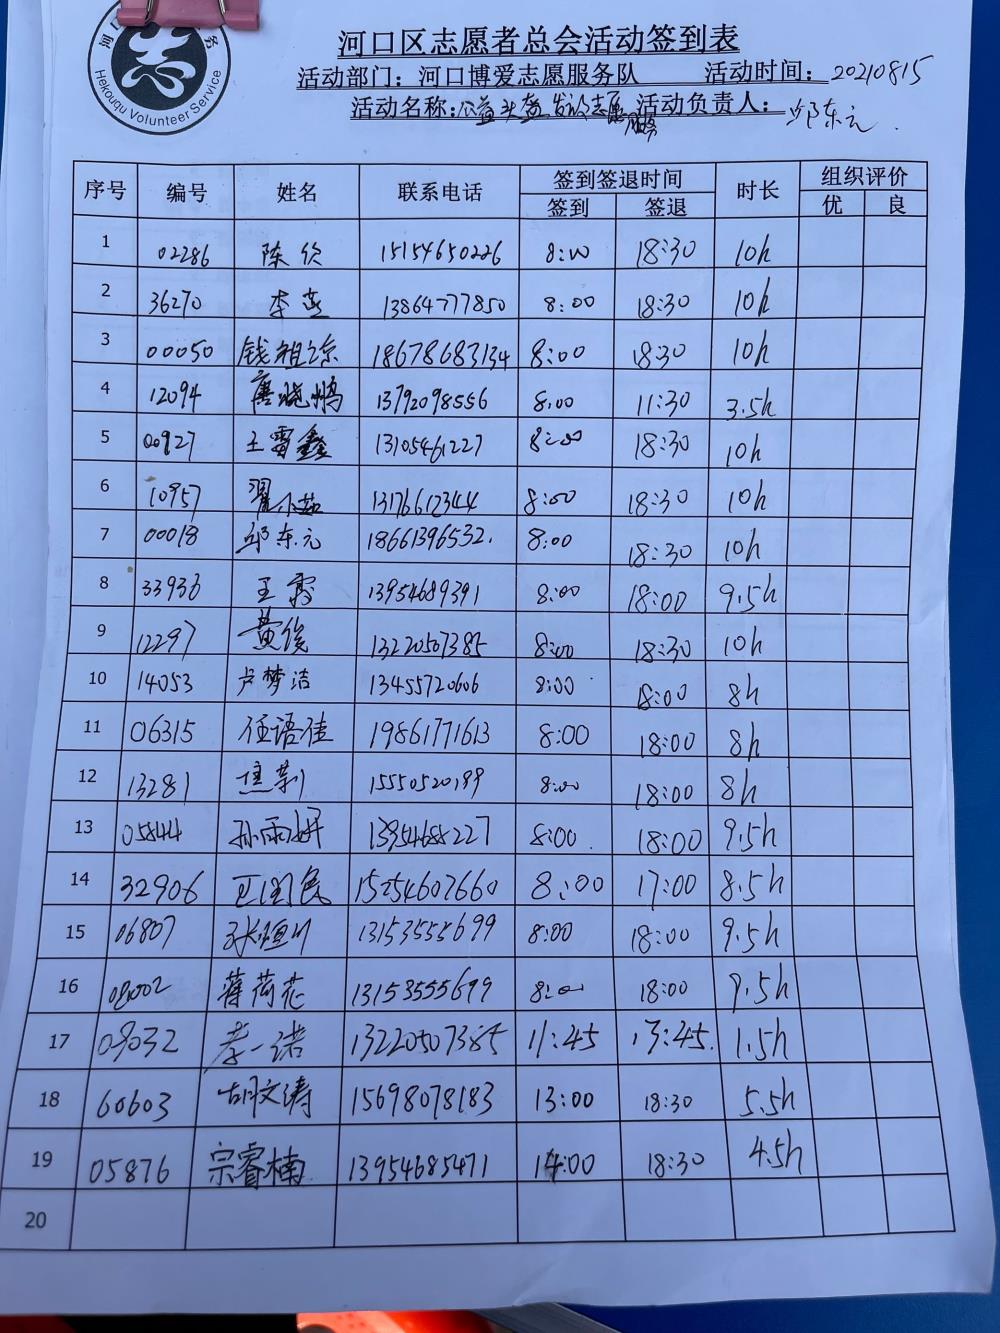 Hekouqu Volunteer Service
河口区志愿者总会活动签到表
活动部门：河口博爱志愿服务队 活动时间：20210815
活动名称：公益头盔发放志愿服务 活动负责人：邱东元
序号 编号 姓名 联系电话 签到签退时间 时长 组织评价
签到 签退 优 良
1 02286 陈 15154650226 8:00 18:30 10h
2 36270 李燕 13864777850 8:00 18:30 10h
3 00050 钱祖 18678683134 8:00 18:30 10h
4 12094 唐晓鹏 13792098556 8:00 11:30 3.5h
5 00927 王雷鑫 13105461227 8:00 18:30 10h
6 10957 翟小茹 13176612344 8:00 18:30 10h
7 00018 邱东元 18661396532. 8:00 18:30 10h
8 33936 王霞 13954689391 8:00 18:00 9.5h
9 12297 黄俊 13220507385 8:00 18:30 10h
10 14053 卢梦洁 13455720606 8:00 18:00 8h
11 06315 任语佳 19861771613 8:00 18:00 8h
12 13281 焦荆 15550520199 8:00 18:00 8h
13 05844 孙雨妍 13954688227 8:00 18:00 9.5h
14 32906 卫国民 15254607660 8:00 17:00 8.5h
15 06807 张恒川 13153555699 8:00 18:00 9.5h
16 08002 薄荷花 13153555699 8:00 18:00 9.5h
17 09032 李一诺 13220507385 11:45 13:45. 1.5h
18 60603 胡文涛 15698078183 13:00 18:30 5.5h
19 05876 宗睿楠 13954685471 14:00 18:30 4.5h
20